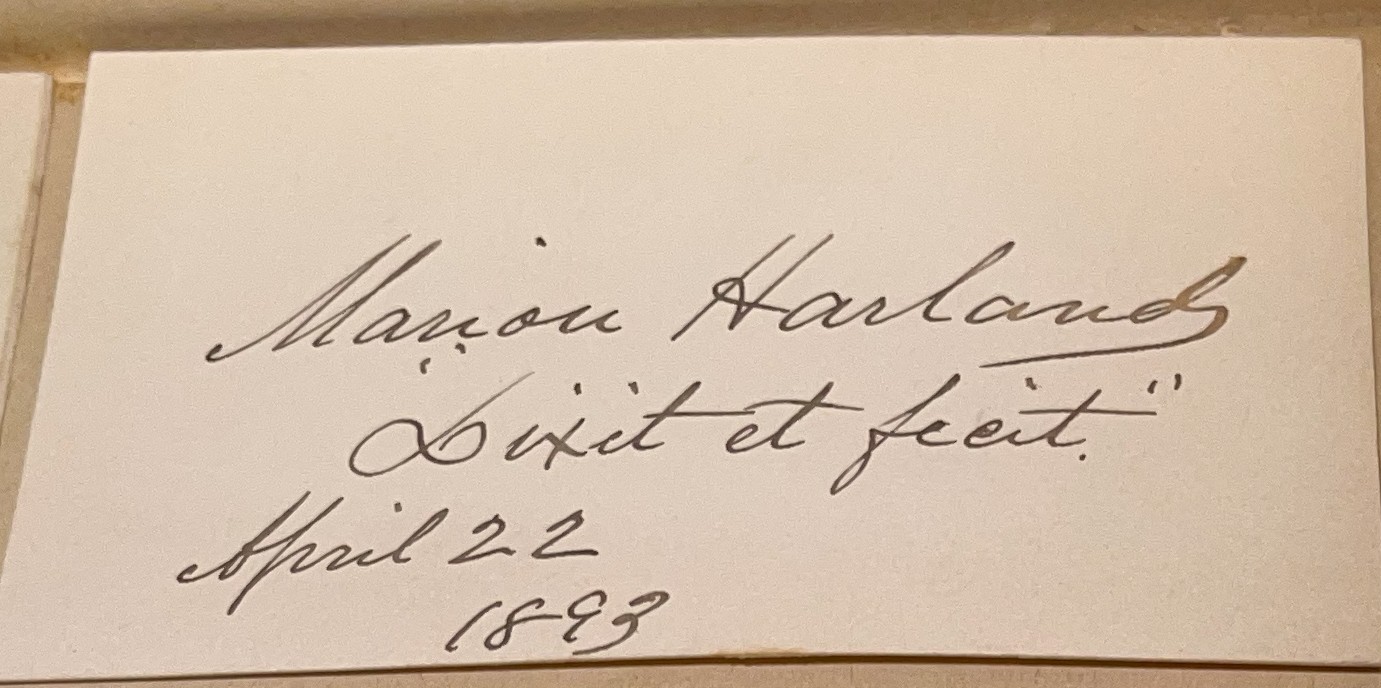 Marion Harland
"Dixit et fecit."
April 22
1893